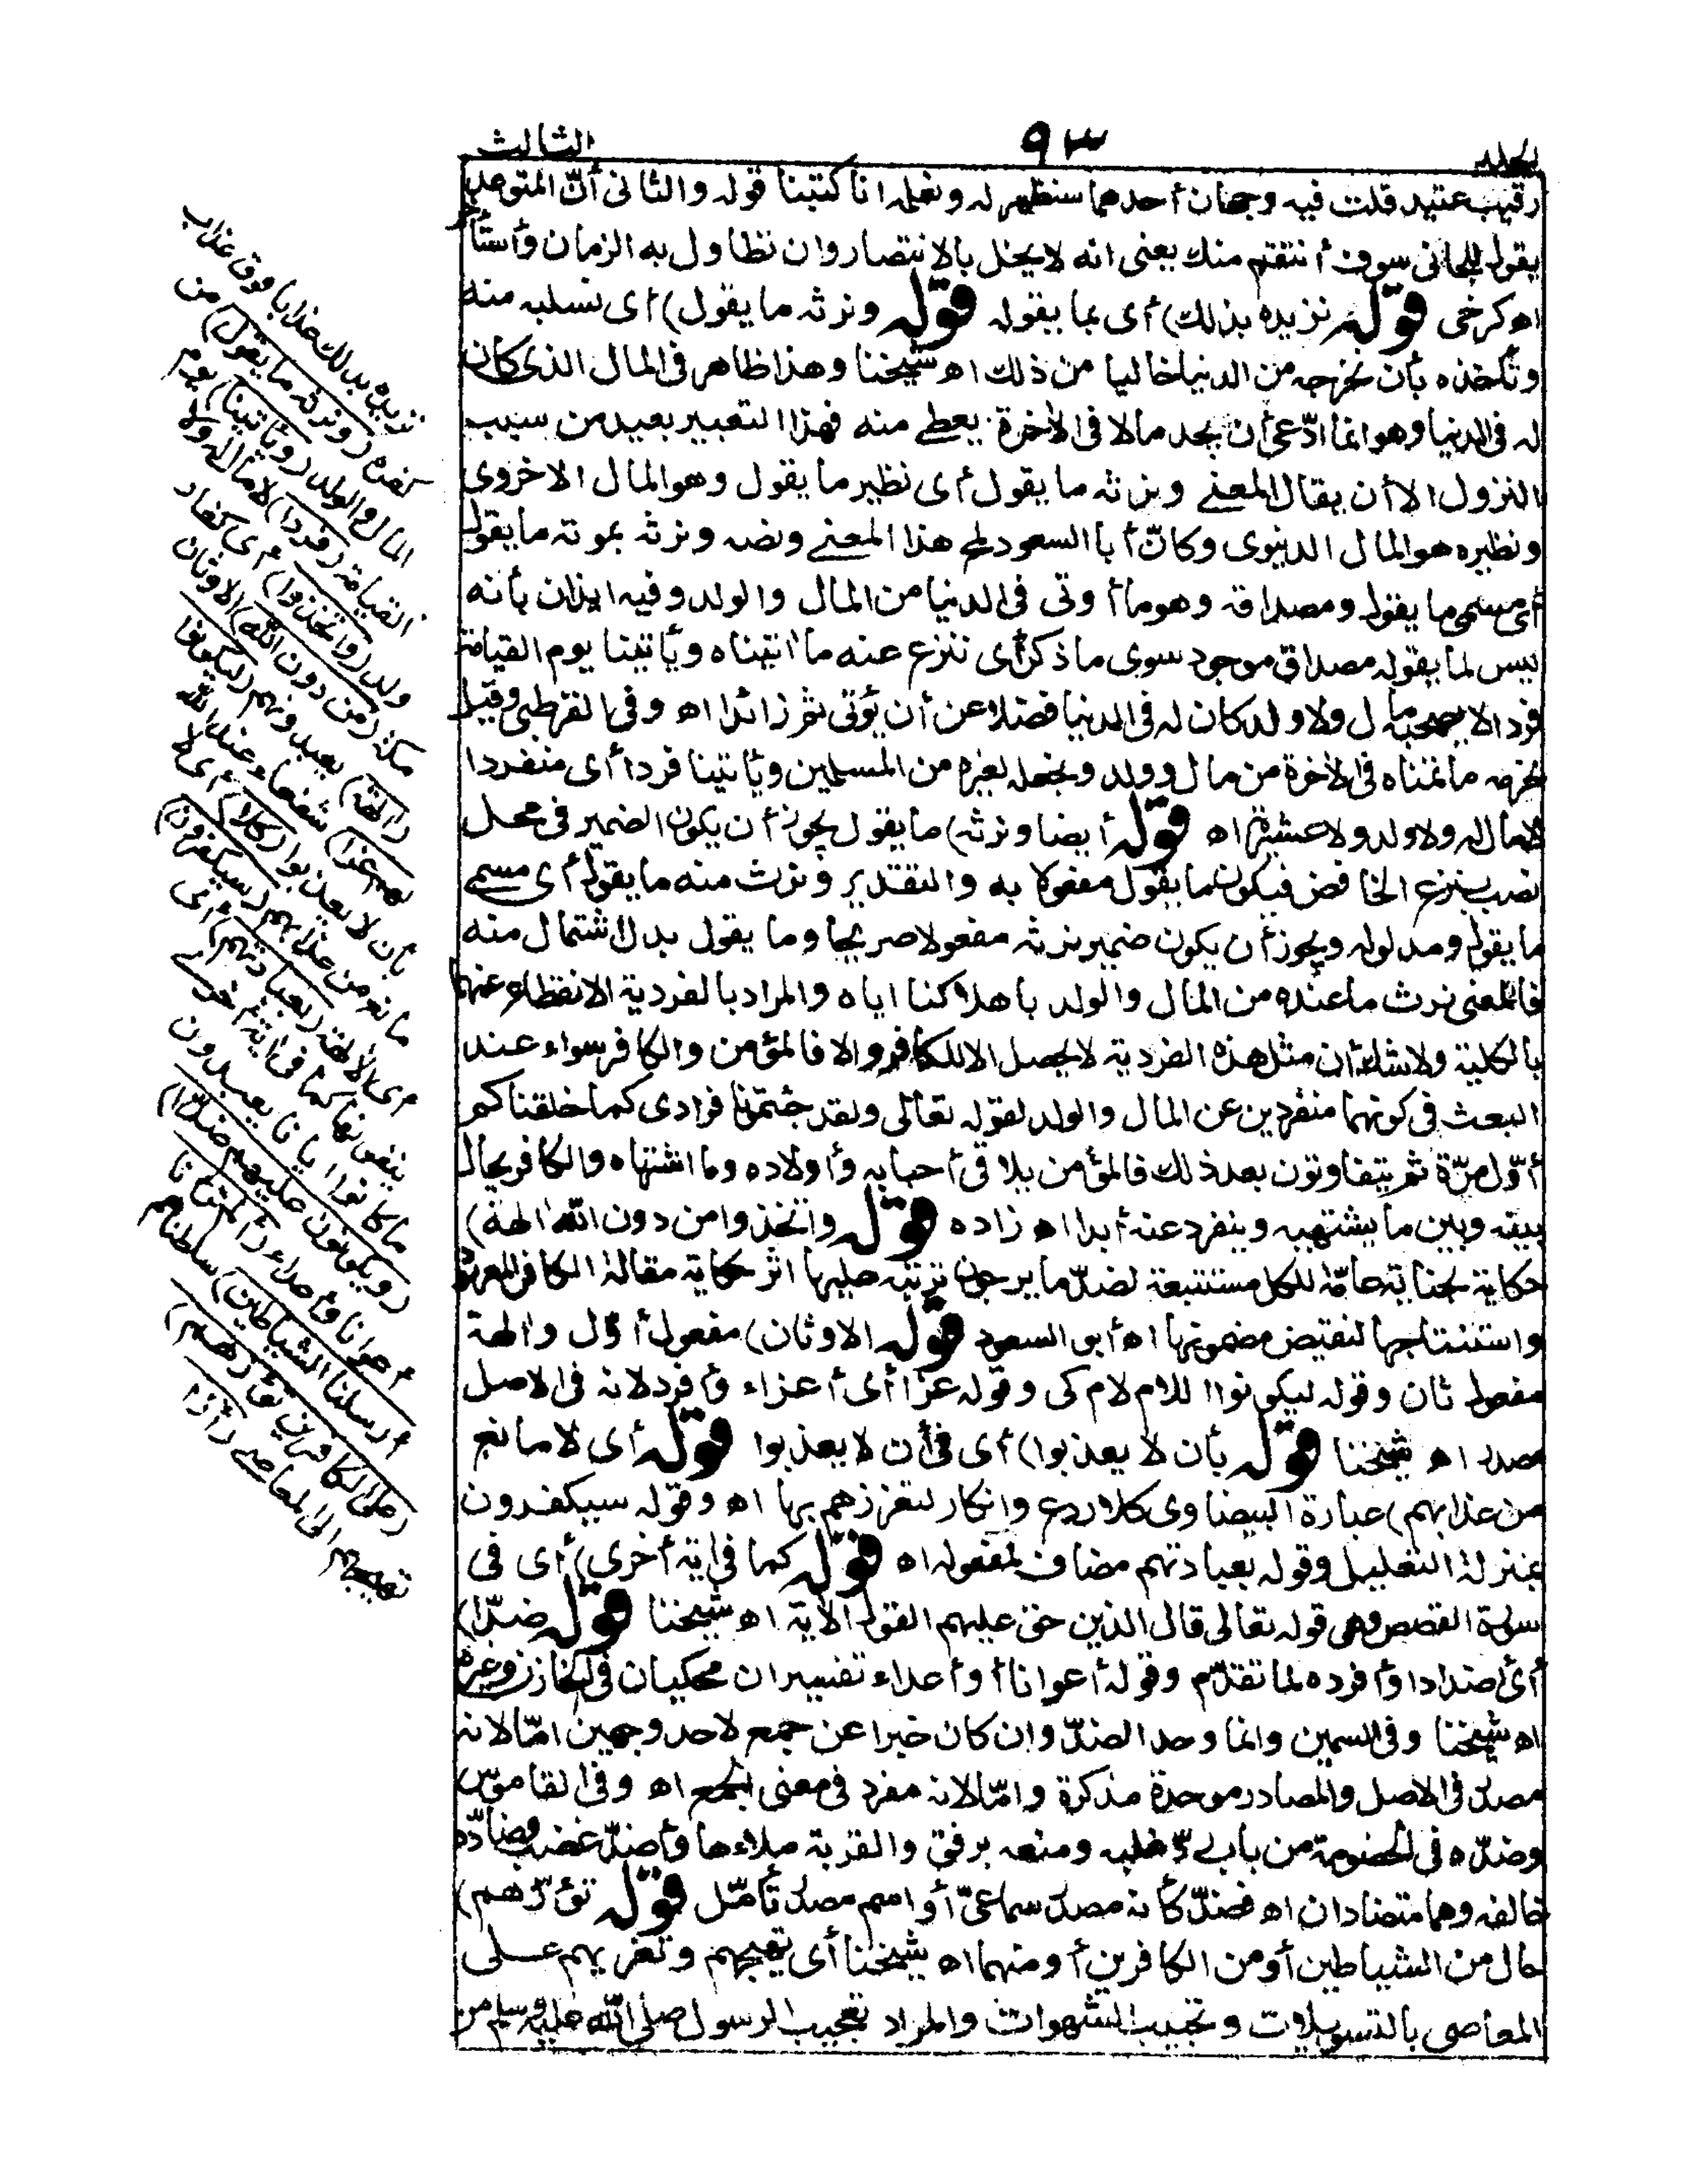 الجلد ٩٣ الثالث
رقيب عتيد قلت فيه وجهان أحدهما سنظهر له ونعلمه انا كتبنا قوله والثانى أنّ المتوعد
يقول للجانى سوف أنتقم منك يعنى انه لا يخل بالانتصار وان تطاول به الزمان واستأخر
اه كرخى قوله نزيده بذلك) أى بما يقوله قوله ونرثه ما يقول) أى نسلبه منه
ونأخذه بأن نخرجه من الدنيا خاليا من ذلك اه شيخنا وهذا ظاهر فى المال الذى كان
له فى الدنيا وهو انما ادّعى أن يجد مالا فى الآخرة يعطى منه فهذا التعبير بعيد من سبب
النزول الا أن يقال المعنى ونرثه ما يقول أى نظير ما يقول وهو المال الاخروى
ونظيره هو المال الدنيوى وكانّ أبا السعود لمح هذا المعنى ونصه ونرثه بموته ما يقول
أى مسمى ما يقول ومصداقه وهو ما أوتى فى الدنيا من المال والولد وفيه ايذان بأنه
ليس لما يقوله مصداق موجود سوى ما ذكر أى ننزع عنه ما آتيناه ويأتينا يوم القيامة
فردا لا يصحبه مال ولا ولد كان له فى الدنيا فضلا عن أن يؤتى ثم زائدا اه وفى القرطبى وقيل
نحرمه ما تمناه فى الآخرة من مال وولد ونجعله لغيره من المسلمين ويأتينا فردا أى منفردا
لا مال له ولا ولد ولا عشيرة اه قوله أيضا ونرثه) ما يقول يجوز أن يكون الضمير فى محل
نصب بنزع الخافض فيكون ما يقول مفعولا به والتقدير ونرث منه ما يقول أى مسمى
ما يقول ومدلوله ويجوز أن يكون ضمير نرثه مفعولا صريحا وما يقول بدل اشتمال منه
فالمعنى نرث ما عنده من المال والولد باهلاكنا اياه والمراد بالفردية الانقطاع عنهما
بالكلية ولا شك أن مثل هذه الفردية لا يحصل الا للكافر والا فالمؤمن والكافر سواء عند
البعث فى كونهما منفردين عن المال والولد لقوله تعالى ولقد جئتمونا فرادى كما خلقناكم
أوّل مرّة ثم يتفاوتون بعد ذلك فالمؤمن يلاقى أحبابه وأولاده وما اشتهاه والكافر يحال
بينه وبين ما يشتهيه وينفرد عنه أبدا اه زاده قوله واتخذوا من دون الله آلهة)
حكاية لجناية عامّة للكل مستتبعة لضدّ ما يرجون ترتبه عليها اثر حكاية مقالة الكافر المعهود
واستنتاجها لنقيض مضمونها اه أبو السعود قوله الاوثان) مفعول أوّل وآلهة
مفعول ثان وقوله ليكونوا اللام لام كى وقوله عزا أى أعزاء وأفرد لانه فى الاصل
مصدر اه شيخنا قوله بأن لا يعذبوا) أى فى أن لا يعذبوا قوله أى لا مانع
من عذابهم) عبارة البيضاوى كلا ردع وانكار لتعززهم بها اه وقوله سيكفرون
بمنزلة التعليل وقوله بعبادتهم مضاف لمفعوله اه قوله كما فى آية أخرى) أى فى
سورة القصص وهى قوله تعالى قال الذين حق عليهم القول الآية اه شيخنا قوله ضدّا)
أى أضدادا وأفرده لما تقدّم وقوله أعوانا أو أعداء تفسيران محكيان فى الخازن وغيره
اه شيخنا وفى السمين وانما وحد الضدّ وان كان خبرا عن جمع لاحد وجهين امّا لانه
مصدر فى الاصل والمصادر موحدة مذكرة وامّا لانه مفرد فى معنى الجمع اه وفى القاموس
وضدّه فى الخصومة من باب ردّ غلبه ومنعه برفق والقربة ملاءها وأضدّ غضب وضادّه
خالفه وهما متضادان اه فضدّ كأنه مصدر سماعىّ أو اسم مصدر تأمّل قوله تؤزّهم)
حال من الشياطين أو من الكافرين أو منهما اه شيخنا أى تهيجهم وتغريهم على
المعاصى بالتسويلات وتحبيب الشهوات والمراد تعجيب الرسول صلى الله عليه وسلم من
نزيده بذلك عذابا فوق عذاب
كفره (ونرثه ما يقول) من
المال والولد (ويأتينا) يوم
القيامة (فردا) لا مال له ولا
ولد (واتخذوا) أى كفار
مكة (من دون الله) الاوثان
(آلهة) يعبدونهم (ليكونوا
لهم عزا) شفعاء عند الله
بأن لا يعذبوا (كلا) أى لا
مانع من عذابهم (سيكفرون)
أى الآلهة (بعبادتهم) أى
ينفونها كما فى آية أخرى
ما كانوا ايانا يعبدون
(ويكونون عليهم ضدّا)
أعوانا وأعداء (ألم تر أنا
أرسلنا الشياطين) سلطناهم
(على الكافرين تؤزهم)
تهيجهم الى المعاصى (أزّا